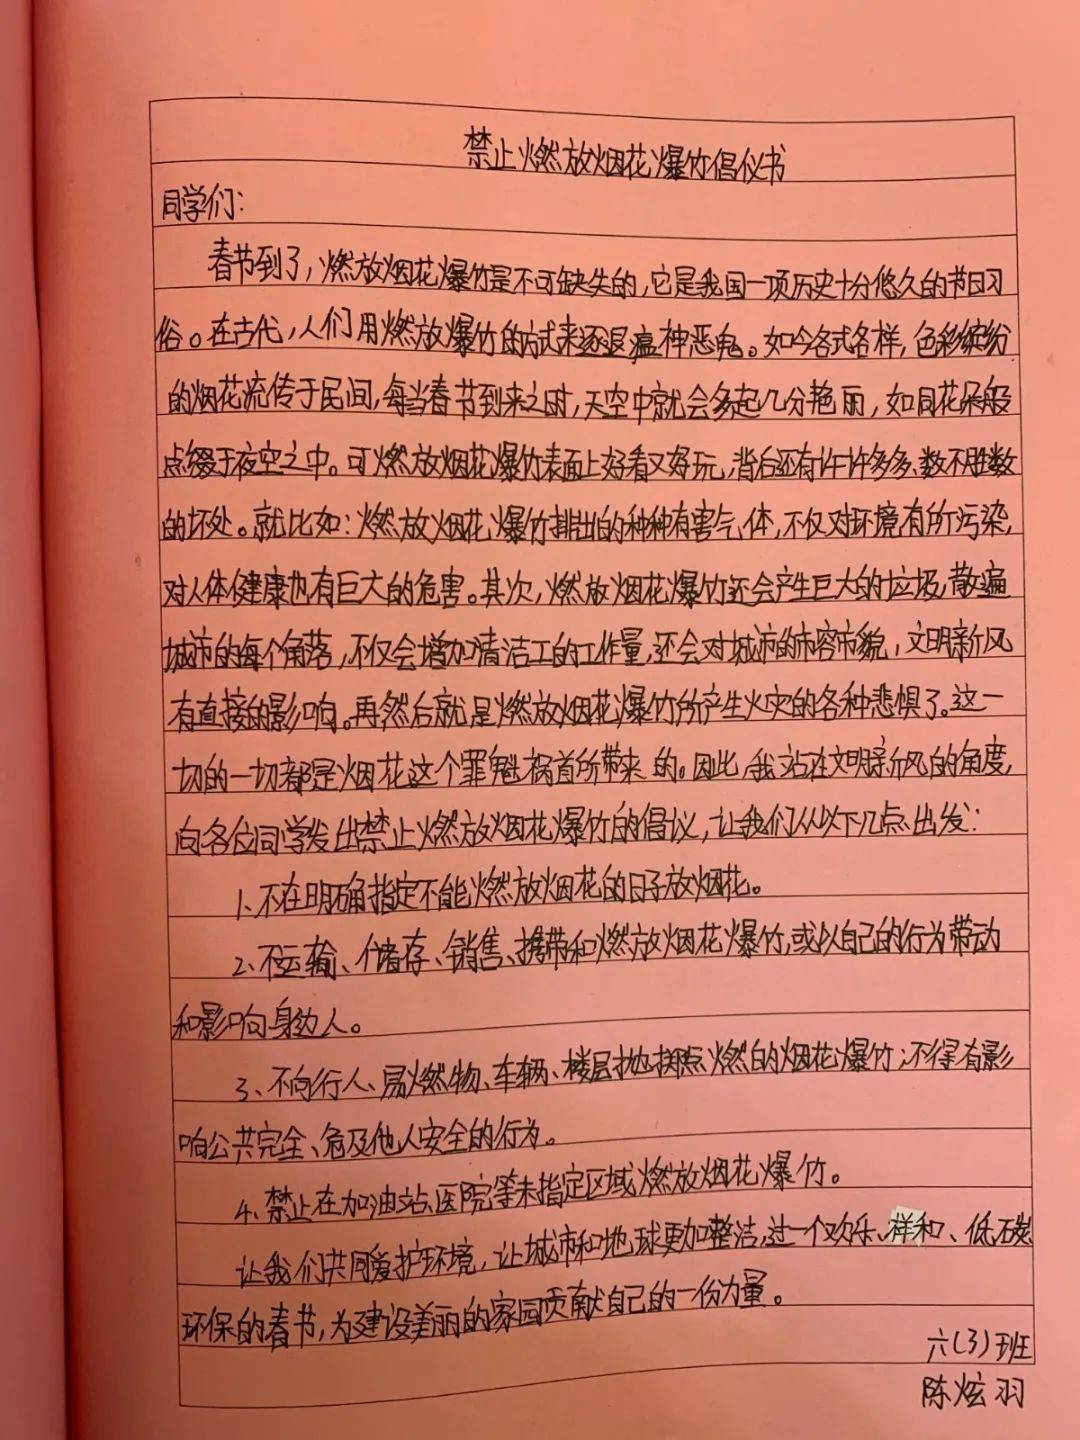 禁止燃放烟花爆竹倡仪书
同学们：
春节到了，燃放烟花爆竹是不可缺失的，它是我国一项历史十分悠久的节日习
俗。在古代，人们用燃放爆竹的方式来逐退瘟神恶鬼。如今各式各样，色彩缤纷
的烟花流传于民间，每当春节到来之时，天空中就会多起几分艳丽，如同花朵般
点缀于夜空之中。可燃放烟花爆竹表面上好看又好玩，背后还有许许多多、数不胜数
的坏处。就比如：燃放烟花爆竹排出的种种有害气体，不仅对环境有所污染，
对人体健康也有巨大的危害。其次，燃放烟花爆竹还会产生巨大的垃圾，散遍
城市的每个角落，不仅会增加清洁工的工作量，还会对城市的市容市貌，文明新风
有直接的影响。再然后就是燃放烟花爆竹所产生火灾的各种悲惧了。这一
切的一切都是烟花这个罪魁祸首所带来的。因此，我站在文明新风的角度，
向各位同学发出禁止燃放烟花爆竹的倡议，让我们从以下几点出发：
1、不在明确指定不能燃放烟花的日子放烟花。
2、不运输、储存、销售、携带和燃放烟花爆竹，或以自己的行为带动
和影响身边人。
3、不向行人、易燃物、车辆、楼层抛掷点燃的烟花爆竹；不得有影
响公共完全、危及他人安全的行为。
4、禁止在加油站、医院等未指定区域燃放烟花爆竹。
让我们共同爱护环境，让城市和地球更加整洁，过一个欢乐、祥和、低碳
环保的春节，为建设美丽的家园贡献自己的一份力量。
六（3）班
陈炫羽